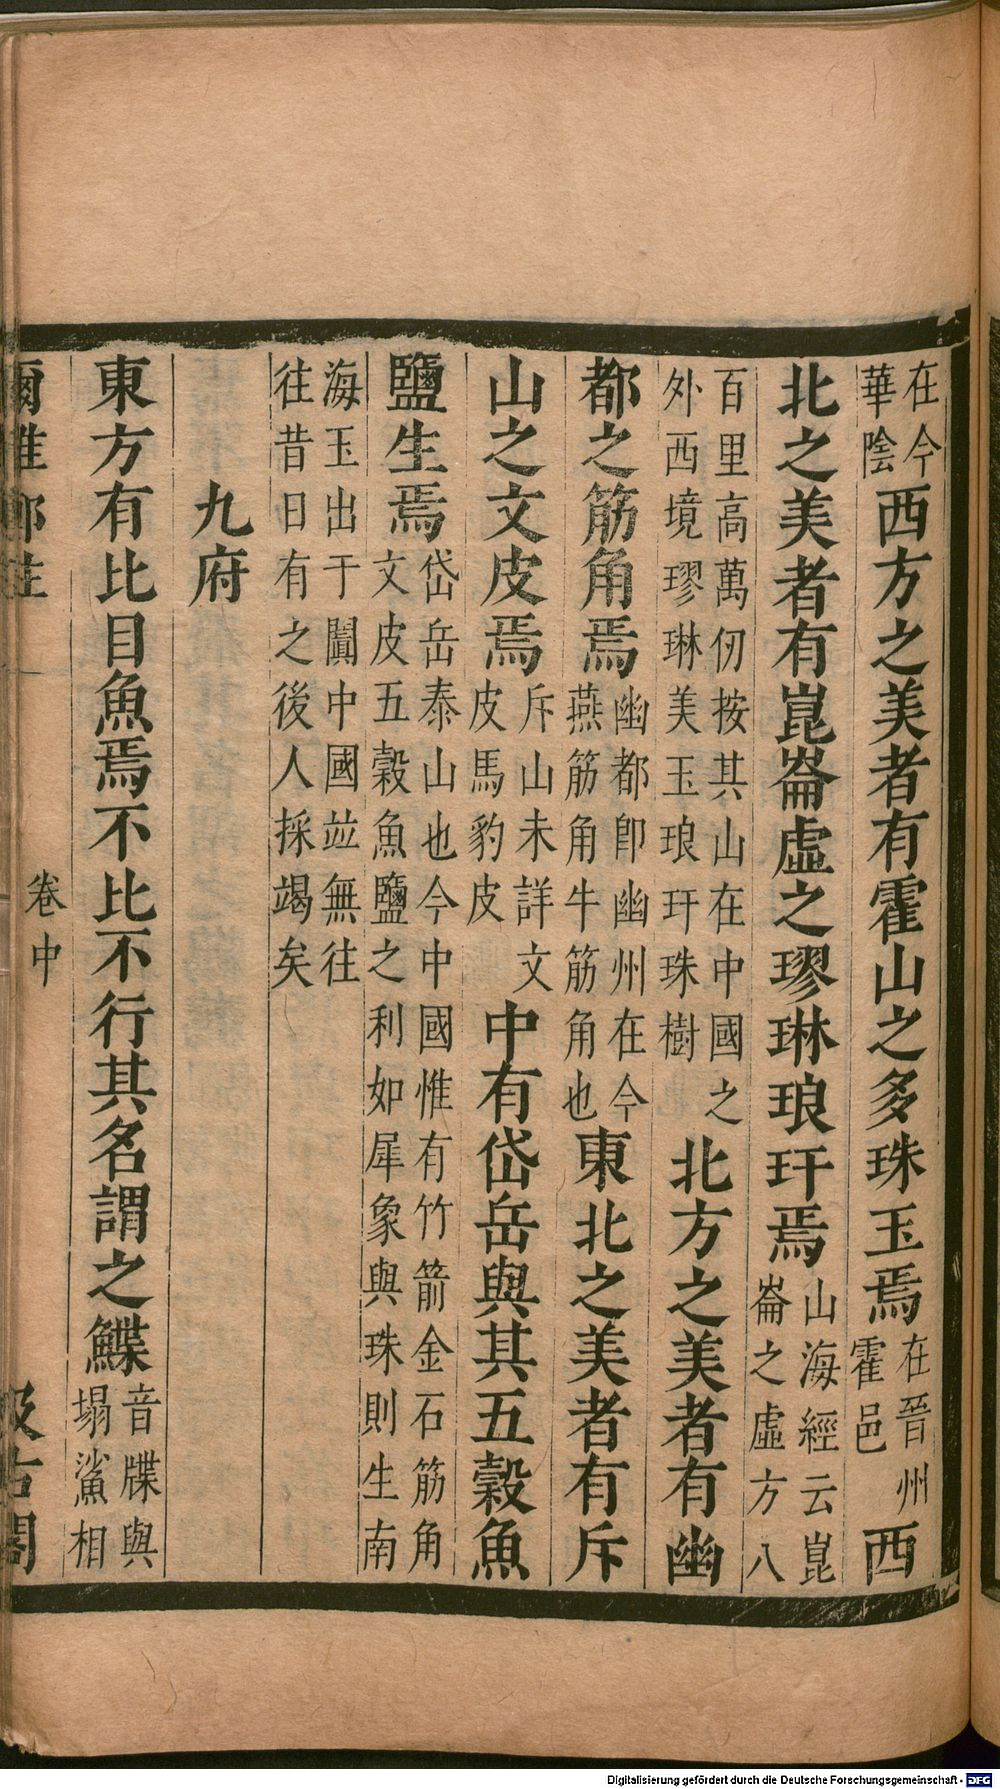 在今華陰西方之美者有霍山之多珠玉焉在晉州霍邑西
北之美者有崑崙虛之璆琳琅玕焉山海經云崑崙之虛方八
百里高萬仞按其山在中國之外西境璆琳美玉琅玕珠樹北方之美者有幽
都之筋角焉幽都卽幽州在今燕筋角牛筋角也東北之美者有斥
山之文皮焉斥山未詳文皮馬豹皮中有岱岳與其五穀魚
鹽生焉岱岳泰山也今中國惟有竹箭金石筋角文皮五穀魚鹽之利如犀象與珠則生南
海玉出于闐中國竝無往往昔日有之後人採竭矣
九府
東方有比目魚焉不比不行其名謂之鰈音牒與塌鯊相
爾雅鄭註
卷中
汲古閣
Digitalisierung gefördert durch die Deutsche Forschungsgemeinschaft - DFG